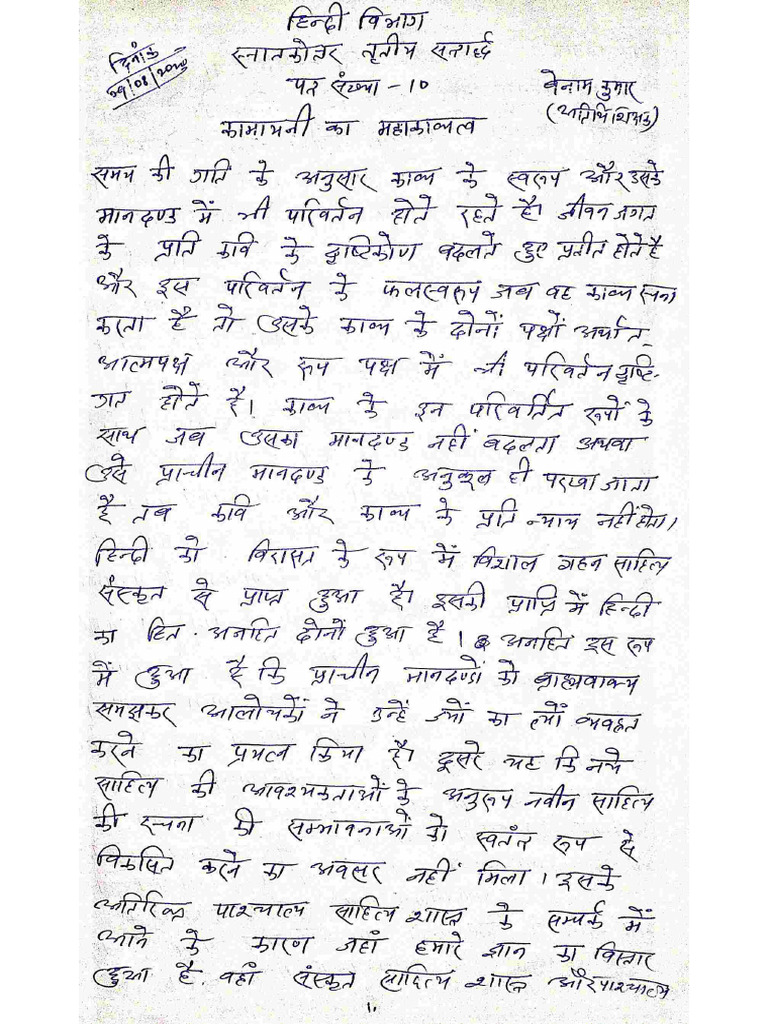 हिन्दी विभाग
स्नातकोत्तर तृतीय सत्रार्द्ध
दिनांक
पत्र संख्या - 10
बेनाम कुमार
(अतिथि शिक्षक)
कामायनी का महाकाव्यत्व
समय की गति के अनुसार काव्य के स्वरूप और उसके
मानदण्ड में भी परिवर्तन होते रहते है। जीवन जगत
के प्रति कवि के दृष्टिकोण बदलते हुए प्रतीत होते है
और इस परिवर्तन के फलस्वरूप जब वह काव्य रचना
करता है तो उसके काव्य के दोनों पक्षों अर्थात्
आत्मपक्ष और रूप पक्ष में भी परिवर्तन दृष्टि-
गत होते है। काव्य के इन परिवर्तित रूपों के
साथ जब उसका मानदण्ड नहीं बदलता अथवा
उसे प्राचीन मानदण्ड के अनुकूल ही परखा जाता
है तब कवि और काव्य के प्रति न्याय नहीं होता।
हिन्दी को विरासत के रूप में विशाल गहन साहित्य
संस्कृत से प्राप्त हुआ है। इसकी प्राप्ति में हिन्दी
का हित - अनहित दोनों हुआ है। अनहित इस रूप
में हुआ है कि प्राचीन मानदण्डों को ब्राह्मवाक्य
समझकर आलोचकों ने उन्हें ज्यों का त्यों व्यवहृत
करने का प्रयत्न किया है। दूसरे यह कि नये
साहित्य की आवश्यकताओं के अनुरूप नवीन साहित्य
की रचना की सम्भावनाओं को स्वतंत्र रूप से
विकसित करने का अवसर नहीं मिला। इसके
अतिरिक्त पाश्चात्य साहित्य शास्त्र के सम्पर्क में
आने के कारण जहां हमारे ज्ञान का विस्तार
हुआ है. वहां संस्कृत साहित्य शास्त्र और पाश्चात्य
1.